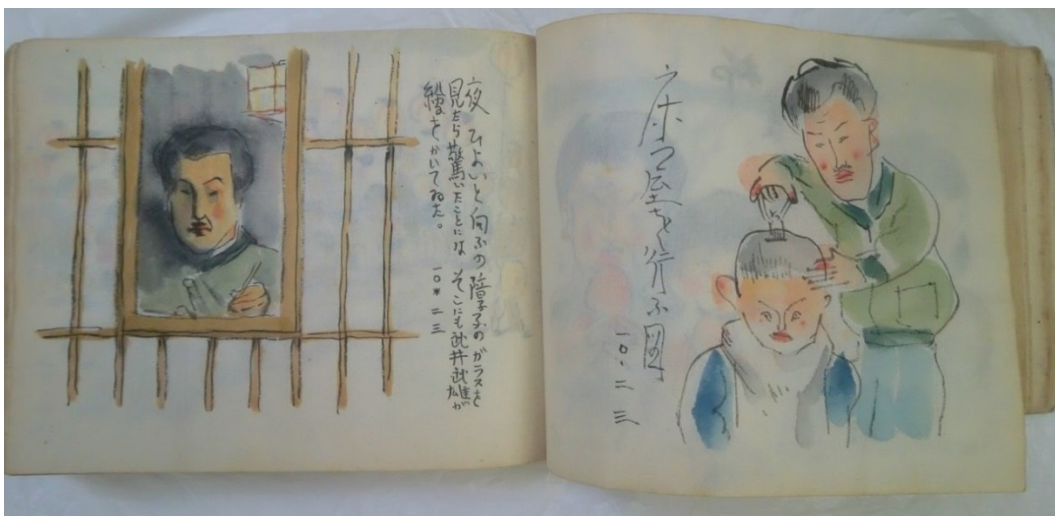 床屋を行ふ図
一〇・二三
夜 ひよいと向ふの障子のガラスを
見たら驚いたことには そこにも武井武雄が
繪をかいてゐた。
一〇・二三